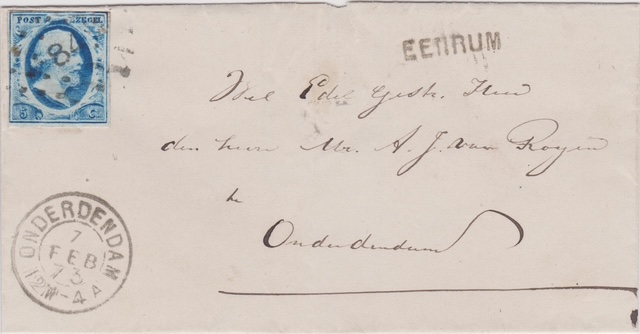 POST ZEGEL
84
5 C.
EENRUM
Wel Edel Gestr. Heer
den heere Mr. A. J. van Royen
te
Onderdendam
ONDERDENDAM
7
FEB
73
12M-4A